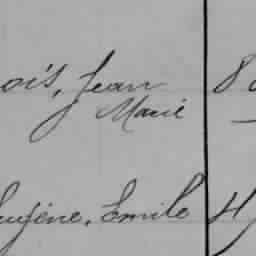 ois, Jean 8
Marie
Eugène, Emile 4